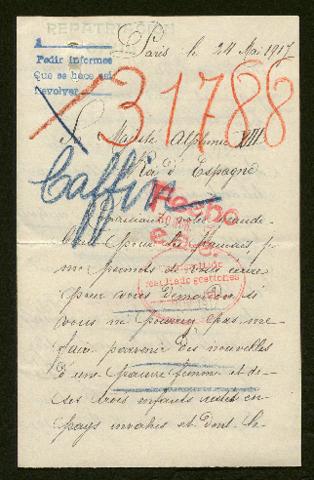 REPATRIACION
Paris le 24 Mai 1917
Pedir informes
Que se hace así
Devolver
31788
S. Majesté Alphonse XIII
Roi d'Espagne
Caffin
Connaissant votre grande
Fecho
bonté pour les Français je
me permets de vous écrire
resultado gestiones
pour vous demander si
vous ne pourriez pas me
faire parvenir des nouvelles
à une pauvre femme et de
ses trois enfants restés en
pays envahis et dont le